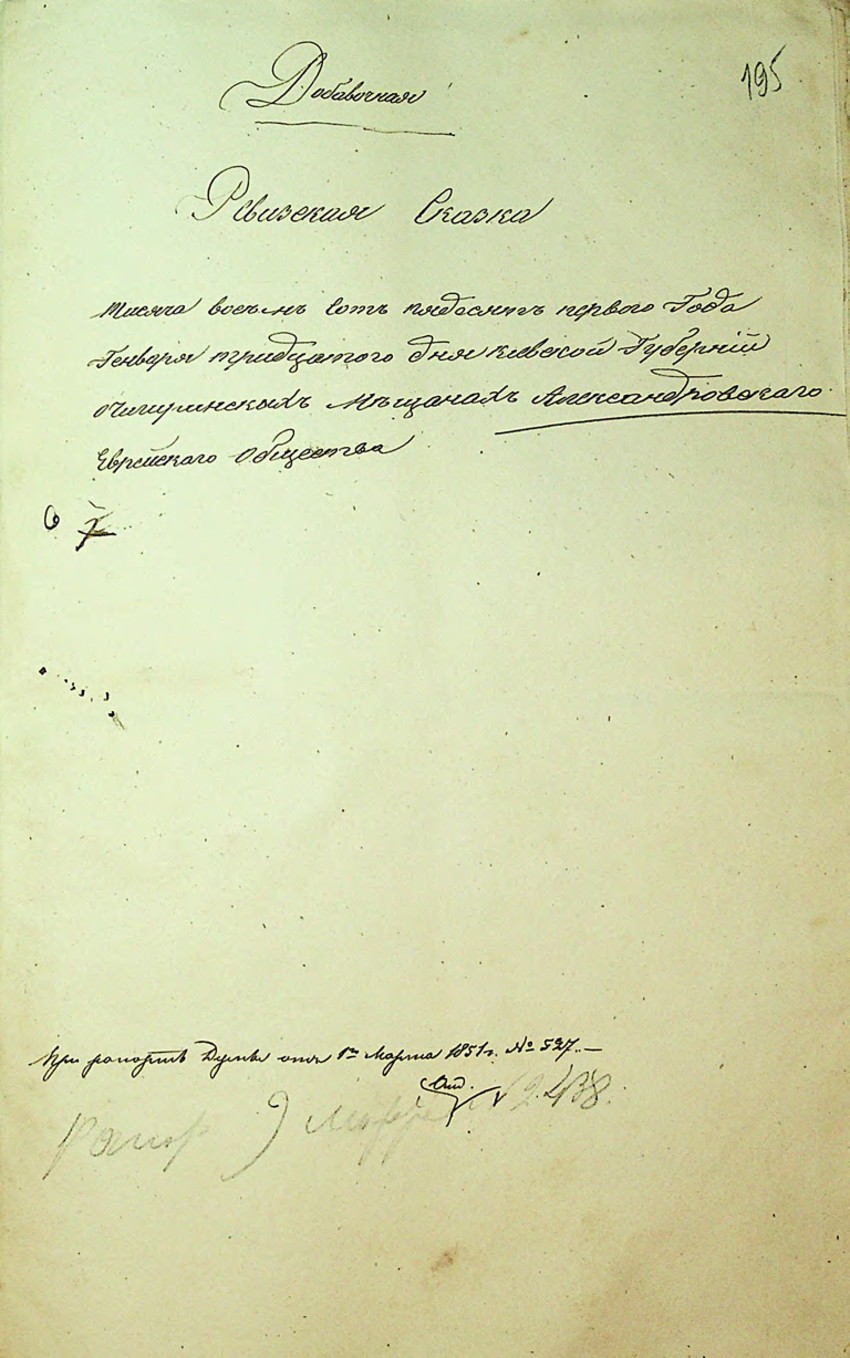 195
Добавочная
Ревизская Сказка
тысяча восемь сотъ пядесятъ первого Года
Генваря тридцатого дня киевской Губерніи
о чигиринскихъ Мѣщанахъ Александровскаго
Еврейского Общества
6
При рапортѣ Думы отъ 1го Марта 1851 г. № 527. —
рапор 9 Мар № 2438.